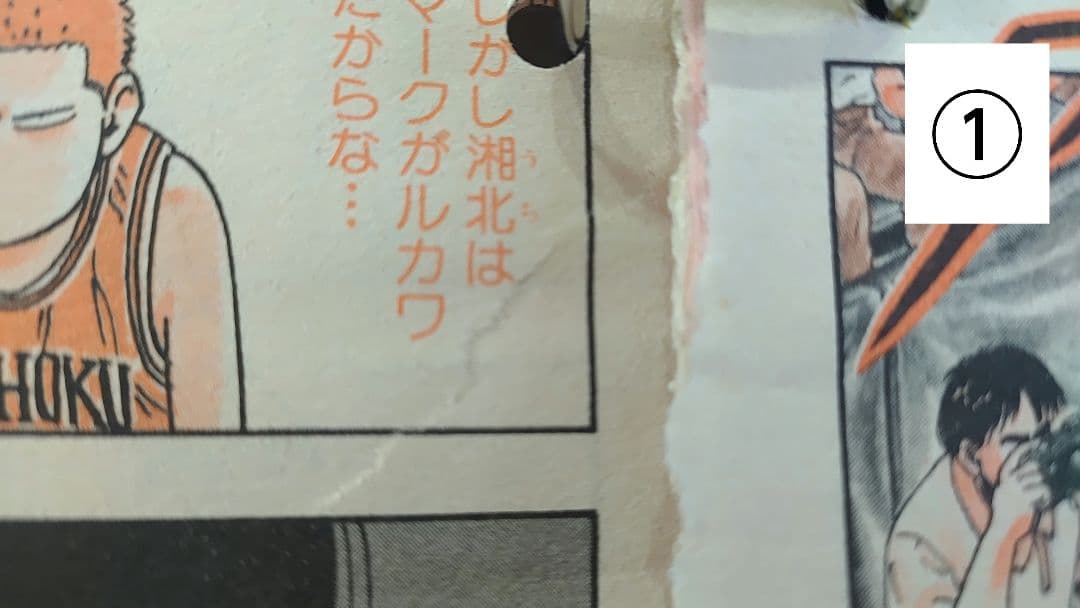 しかし湘北は
うち
マークがルカワ
たからな…
HOKU
①